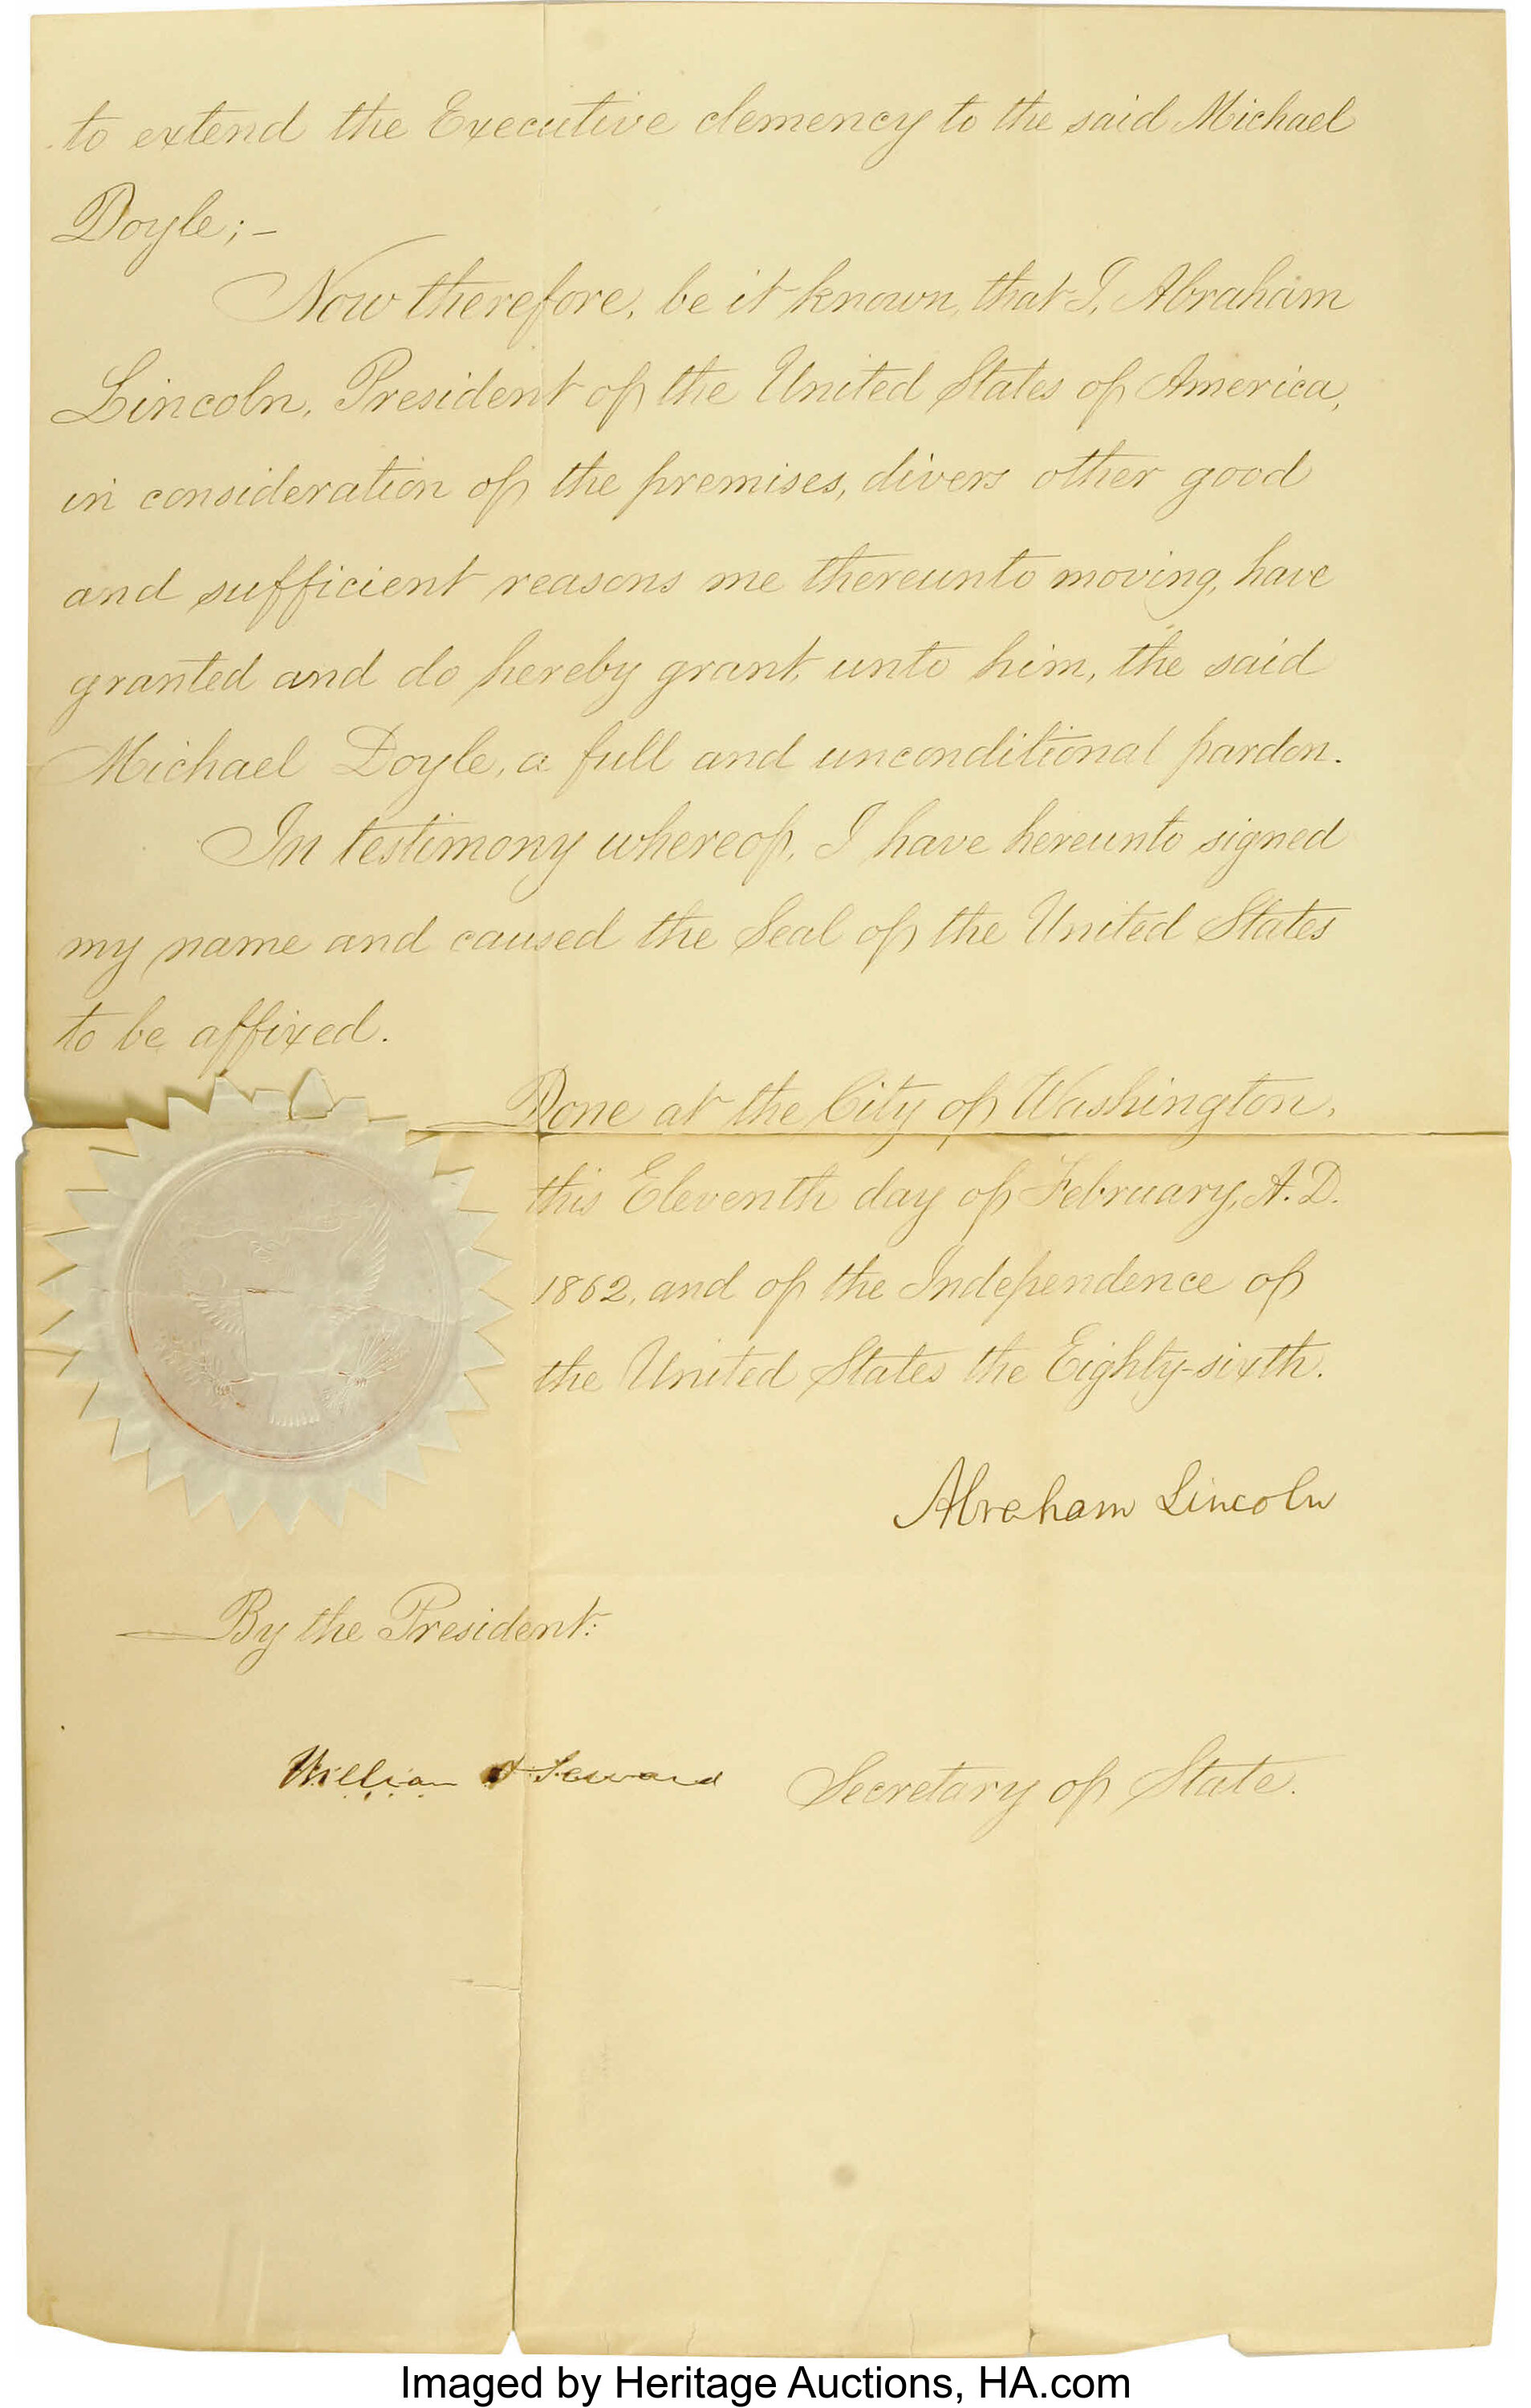 to extend the Executive clemency to the said Michael
Doyle;–
Now therefore, be it known, that I, Abraham
Lincoln, President of the United States of America,
in consideration of the premises, divers other good
and sufficient reasons me thereunto moving, have
granted and do hereby grant unto him, the said
Michael Doyle, a full and unconditional pardon.
In testimony whereof, I have hereunto signed
my name and caused the Seal of the United States
to be affixed.
Done at the City of Washington,
this Eleventh day of February, A.D.
1862, and of the Independence of
the United States the Eighty-sixth.
Abraham Lincoln
By the President:
William H Seward Secretary of State.
Imaged by Heritage Auctions, HA.com